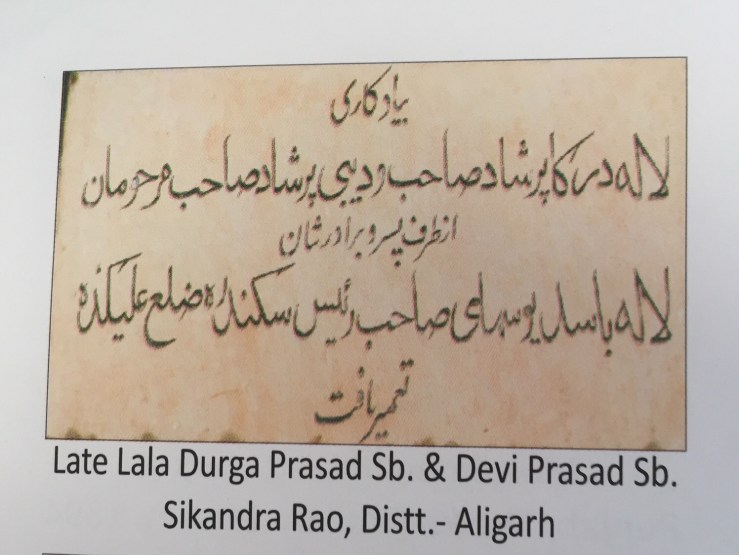 بیادگاری
لالہ درگا پرشاد صاحب و دیبی پرشاد صاحب مرحومان
از طرف پسر و برادرشان
لالہ باسدیو سہای صاحب رئیس سکندرہ ضلع علیگڈہ
تعمیر یافت
Late Lala Durga Prasad Sb. & Devi Prasad Sb.
Sikandra Rao, Distt.- Aligarh